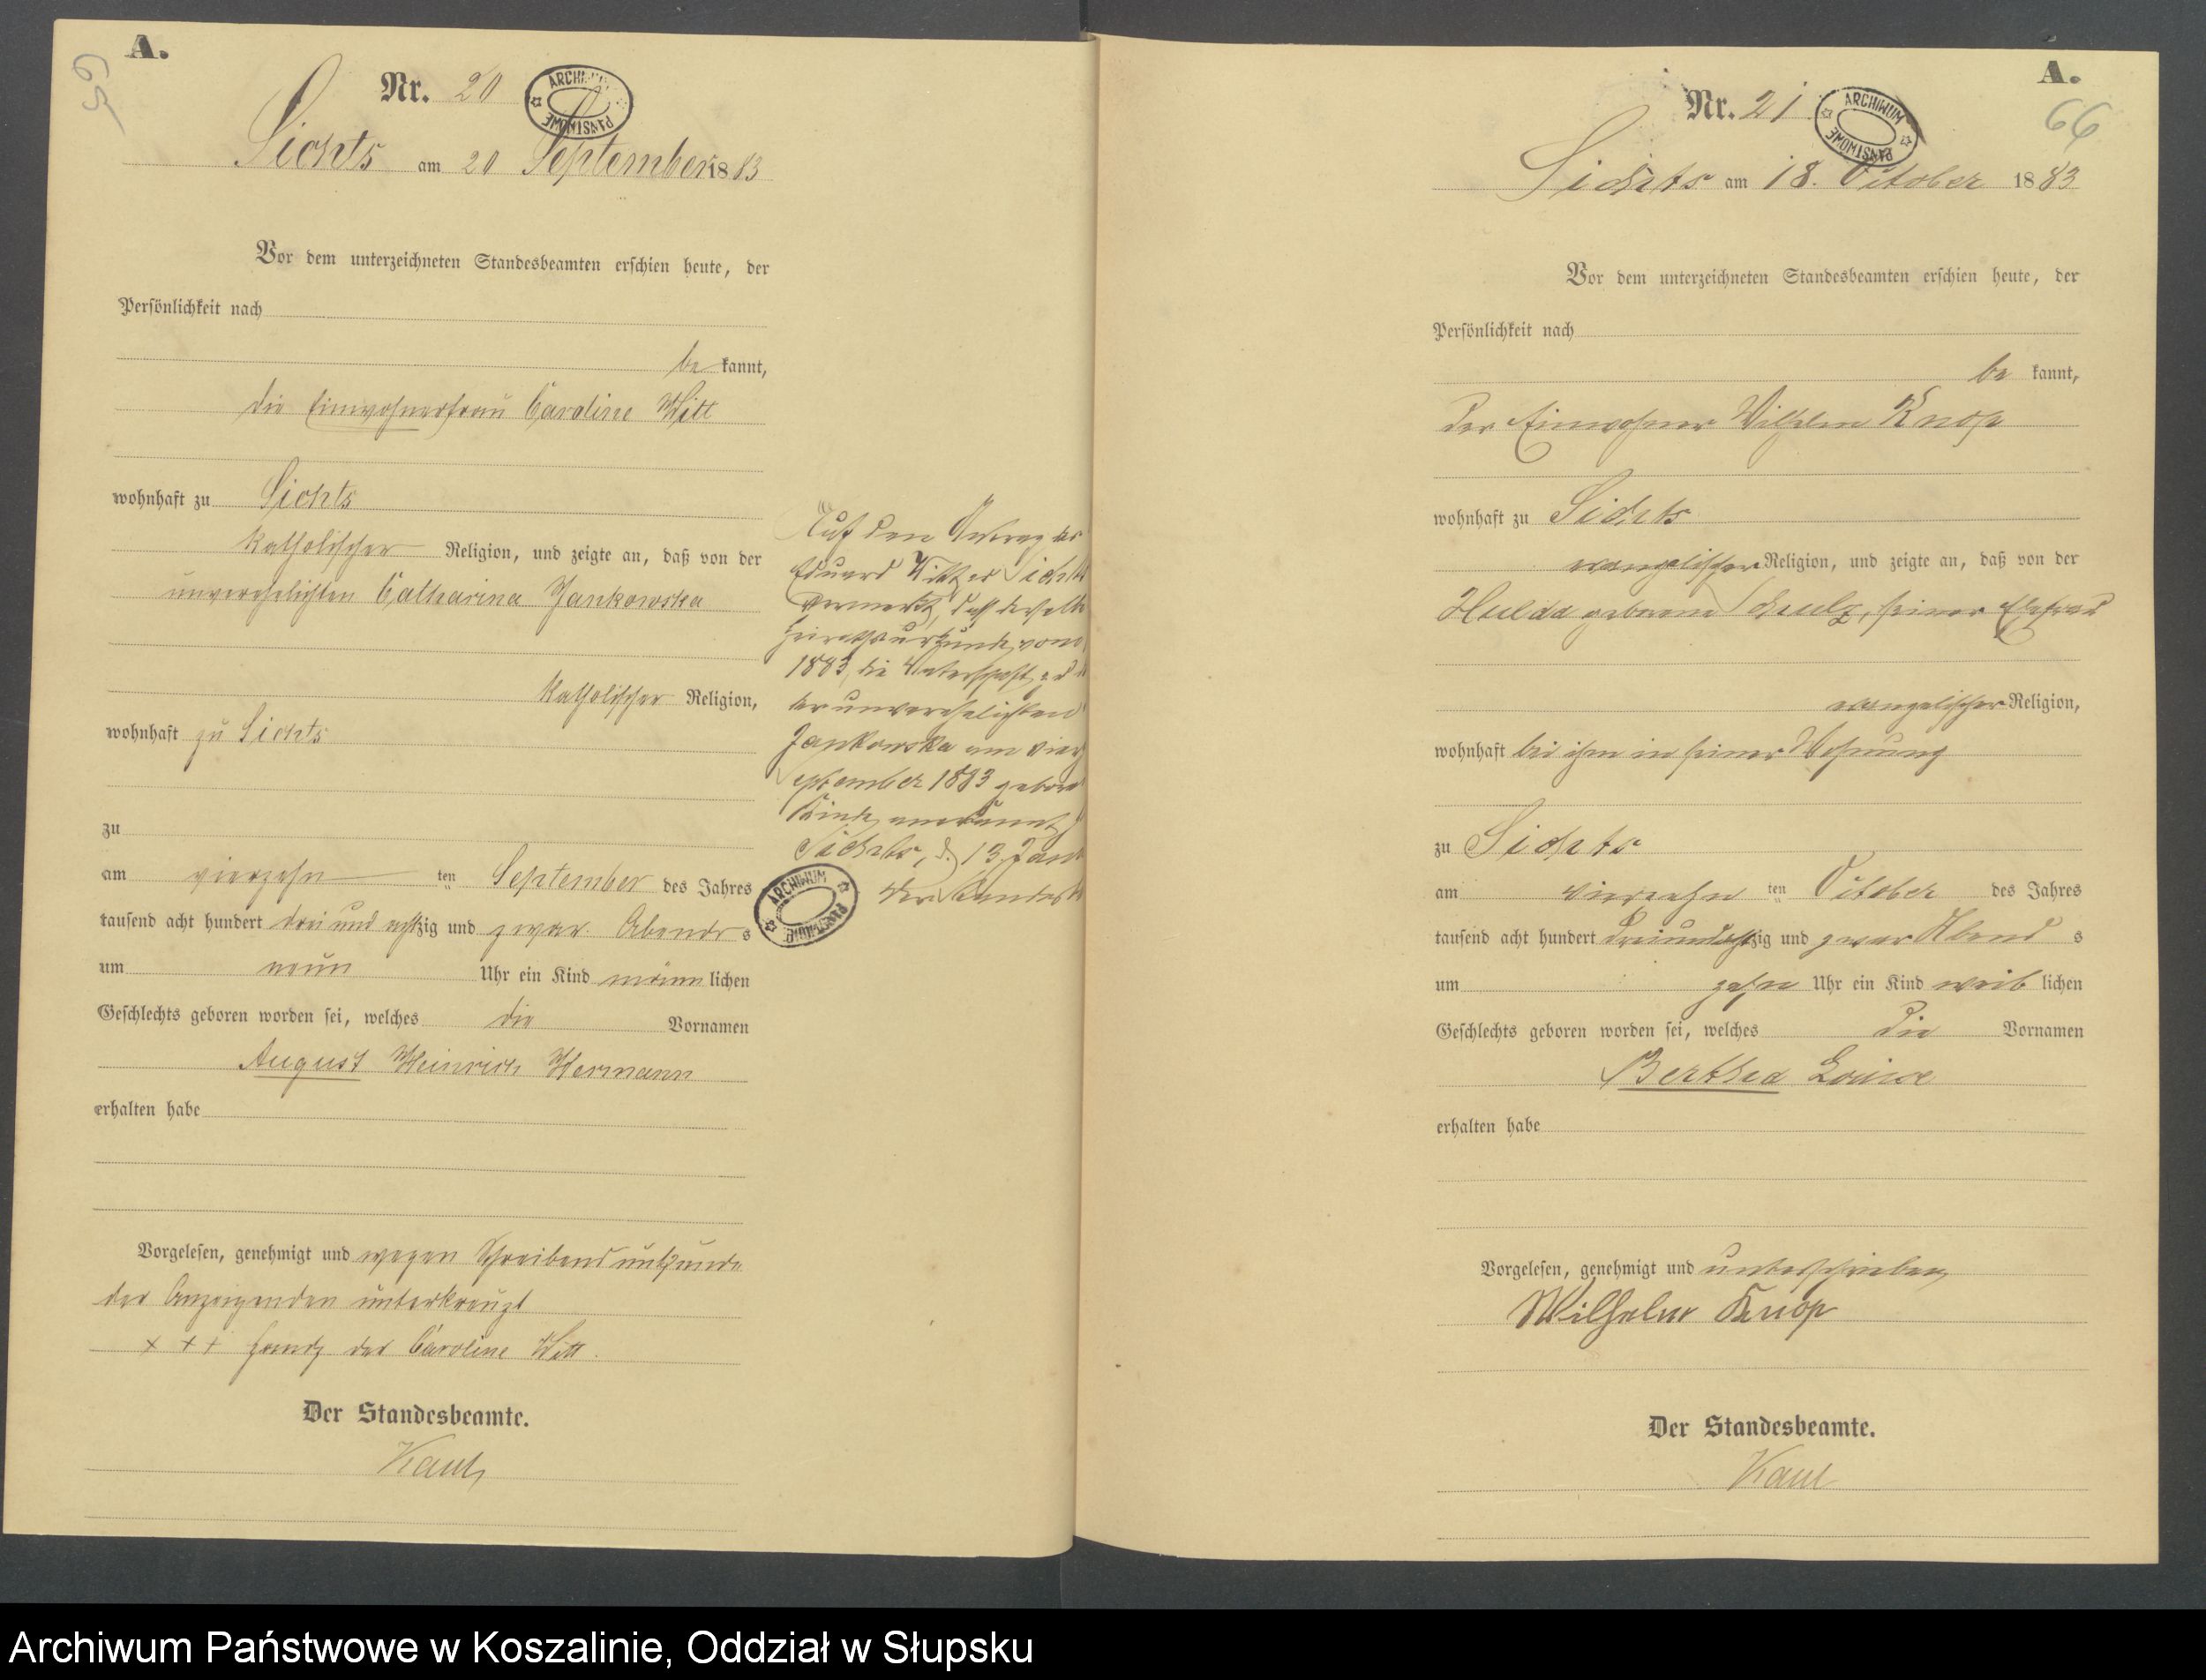 A.
65
Nr. 20
ARCHIWUM PAŃSTWOWE
Sichts am 20 September 1883
Vor dem unterzeichneten Standesbeamten erschien heute, der
Persönlichkeit nach
be kannt,
die Einwohnerfrau Caroline Witt
wohnhaft zu Sichts
katholischer Religion, und zeigte an, daß von der
unverehelichten Catharina Jankowska
katholischer Religion,
wohnhaft zu Sichts
zu
am vierzehn ten September des Jahres
tausend acht hundert drei und achtzig und zwar Abends s
um neun Uhr ein Kind männ lichen
Geschlechts geboren worden sei, welches die Vornamen
August Heinrich Hermann
erhalten habe
Vorgelesen, genehmigt und wegen Schreibensunkunde
der Anzeigenden unterkreuzt
+ + + Handz der Caroline Witt.
Der Standesbeamte.
Kaul
Auf den Antrag des
Eduard Witt zu Sichts
vermerkt, daß derselbe
Heirathsurkunde vom
1883, die Vaterschaft
der unverehelichten
Jankowska am vier
September 1883 gebore
Kinde anerkannt
Sichts, d. 13. Jan
Der Standesb
ARCHIWUM PAŃSTWOWE
A.
66
Nr. 21
ARCHIWUM PAŃSTWOWE
Sichts am 18. October 1883
Vor dem unterzeichneten Standesbeamten erschien heute, der
Persönlichkeit nach
be kannt,
Der Einwohner Wilhelm Knop
wohnhaft zu Sichts
evangelischer Religion, und zeigte an, daß von der
Hulda geborene Schulz, seiner Ehefrau
evangelischer Religion,
wohnhaft bei ihm in seiner Wohnung
zu Sichts
am vierzehn ten October des Jahres
tausend acht hundert dreiundachtzig und zwar Abend s
um zehn Uhr ein Kind weib lichen
Geschlechts geboren worden sei, welches die Vornamen
Bertha Louise
erhalten habe
Vorgelesen, genehmigt und unterschrieben
Wilhelm Knop
Der Standesbeamte.
Kaul
Archiwum Państwowe w Koszalinie, Oddział w Słupsku